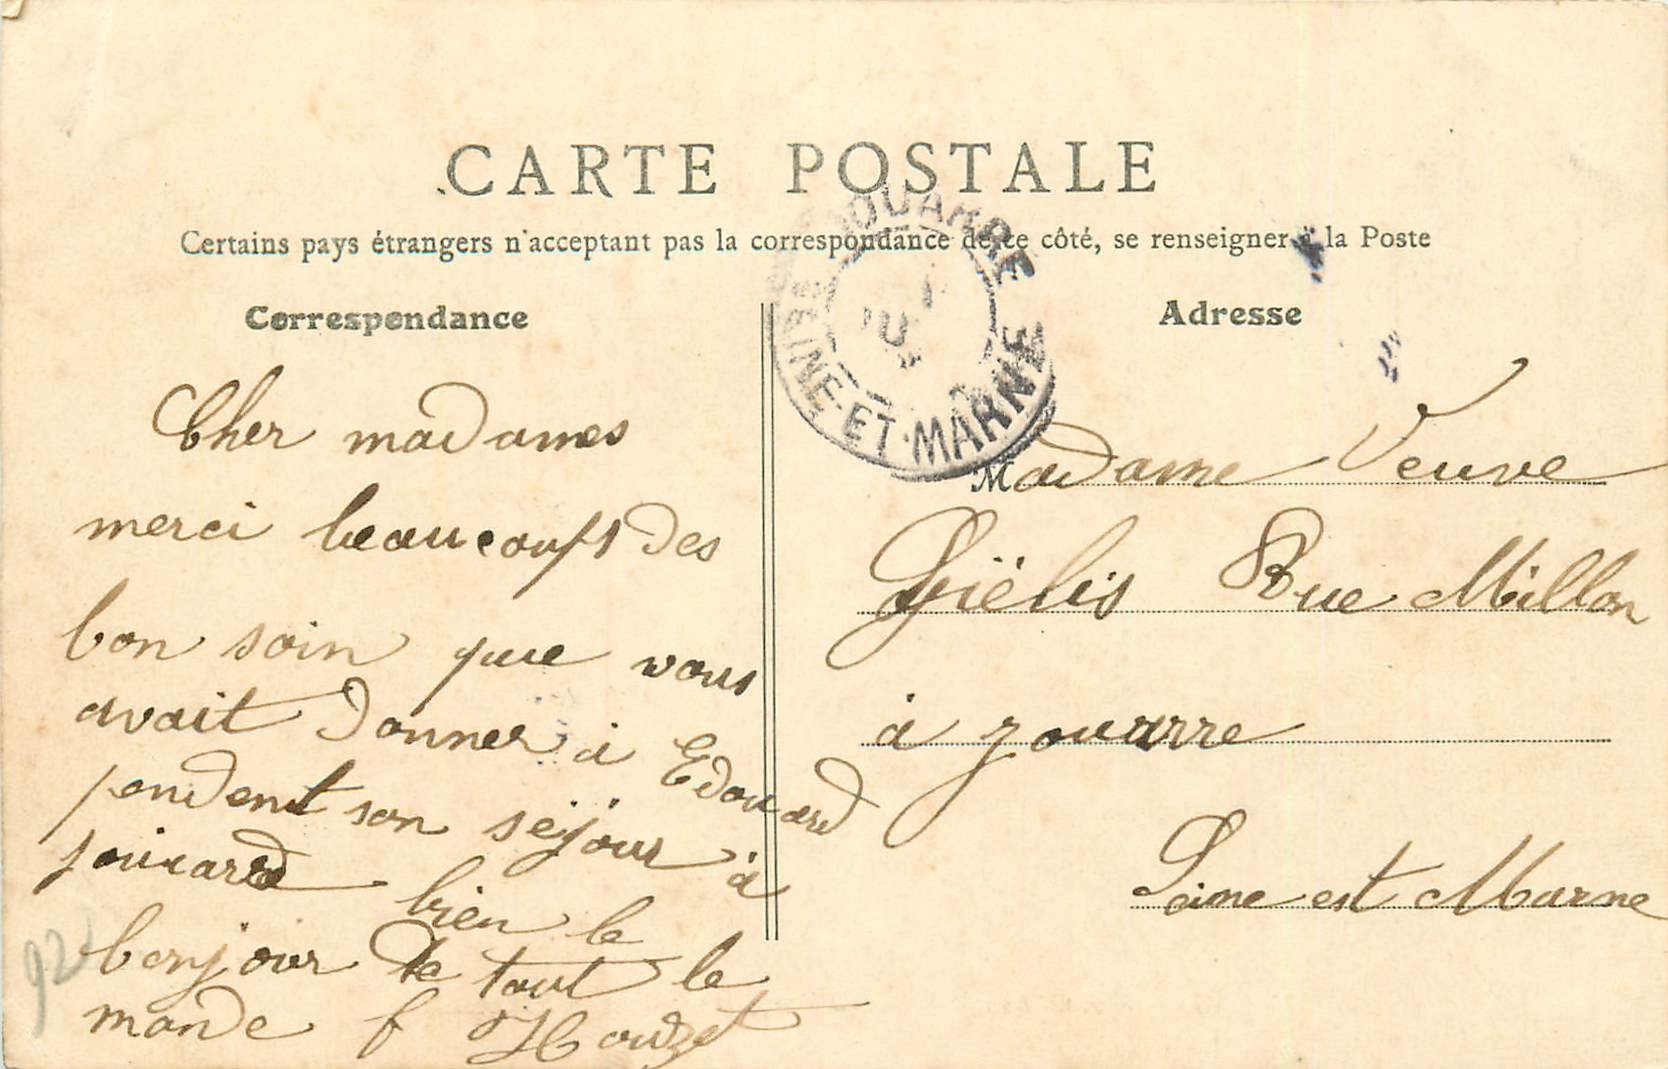 CARTE POSTALE
Certains pays étrangers n'acceptant pas la correspondance de ce côté, se renseigner à la Poste
JOUARRE
SEINE-ET-MARNE
Correspondance
Cher madames
merci beaucoups des
bon soin que vous
avait donner à Edouard
pendent son séjour à
Jouiard bien le
bonjour de tout le
monde
Adresse
Madame Veuve
Giëlis Rue Millon
à Jouarre
Seine est Marne
92